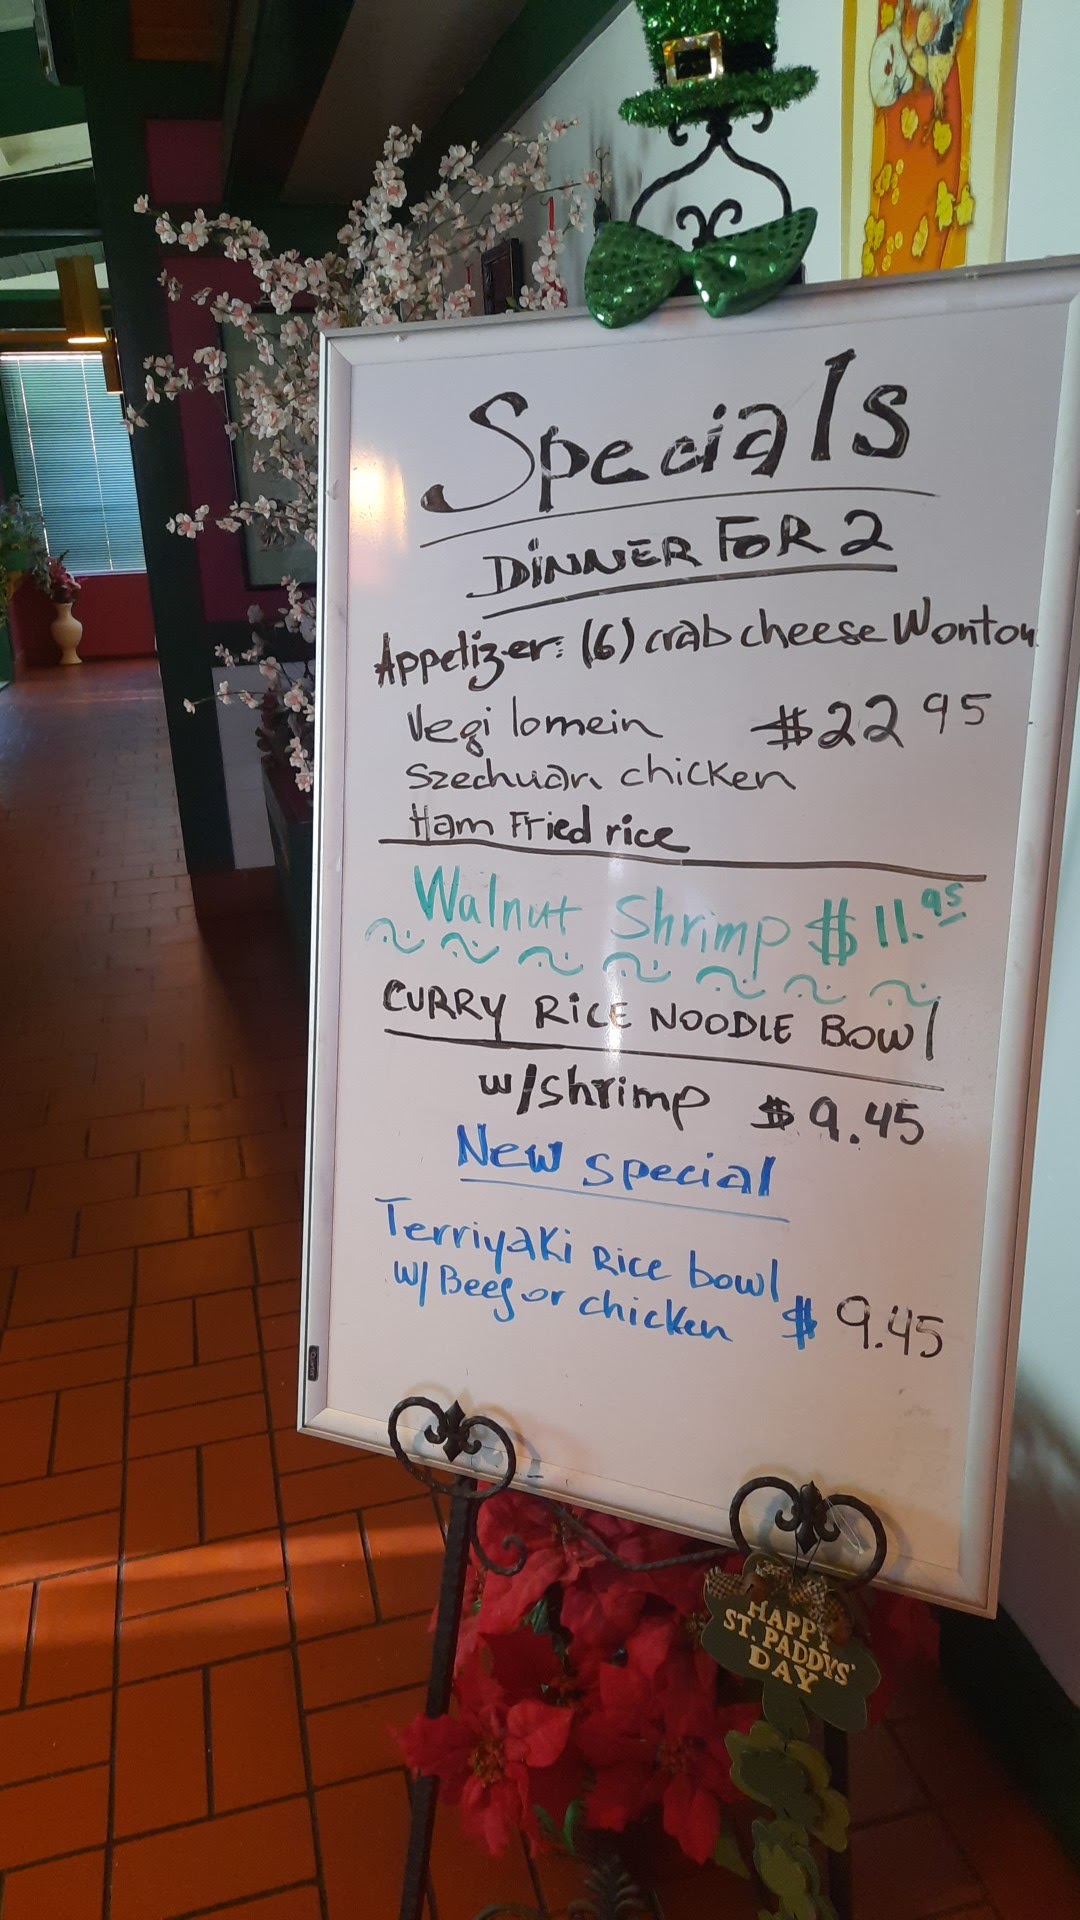 Specials
DINNER FOR 2
Appetizer: (6) crab cheese Wonton
Vegi lomein $22 95
Szechuan chicken
Ham Fried rice
Walnut Shrimp $11.95
CURRY RICE NOODLE BOWl
w/shrimp $9.45
New special
Terriyaki Rice bowl
w/ Beef or chicken $9.45
HAPPY
ST. PADDYS'
DAY